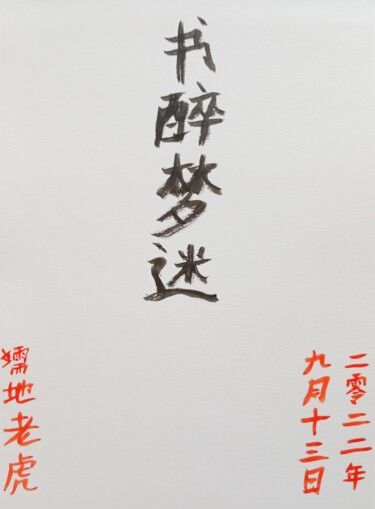 书醉梦迷
二零二二年
九月十三日
孺地老虎